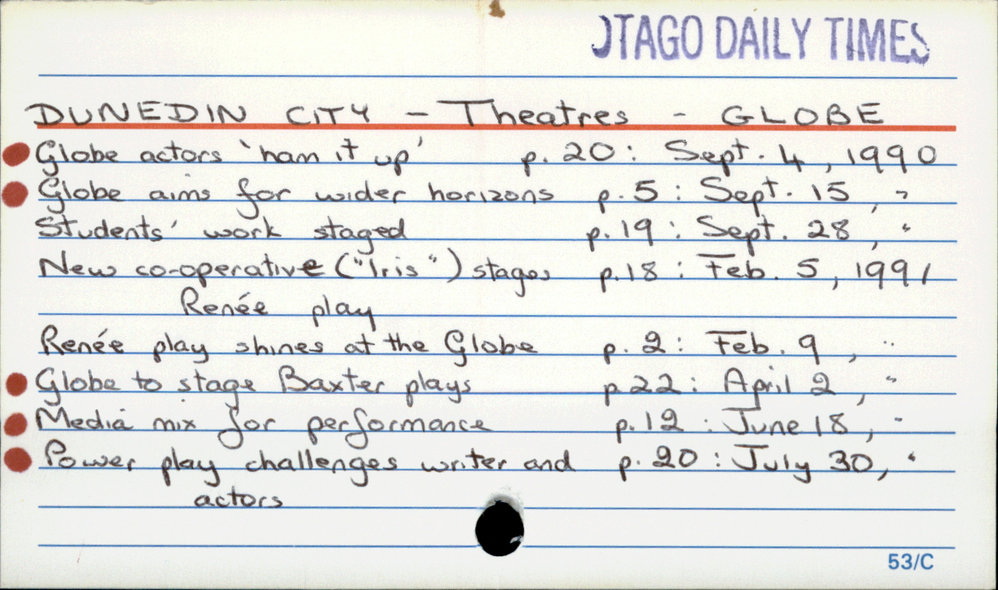 OTAGO DAILY TIMES
DUNEDIN CITY - Theatres - GLOBE
Globe actors 'ham it up' p. 20 : Sept. 4, 1990
Globe aims for wider horizons p. 5 : Sept. 15, "
Students' work staged p. 19 : Sept. 28, "
New co-operative ("Iris") stages p. 18 : Feb. 5, 1991
Renée play
Renée play shines at the Globe p. 2 : Feb. 9, "
Globe to stage Baxter plays p. 22 : April 2, "
Media mix for performance p. 12 : June 18, "
Power play challenges writer and p. 20 : July 30, "
actors
53/C